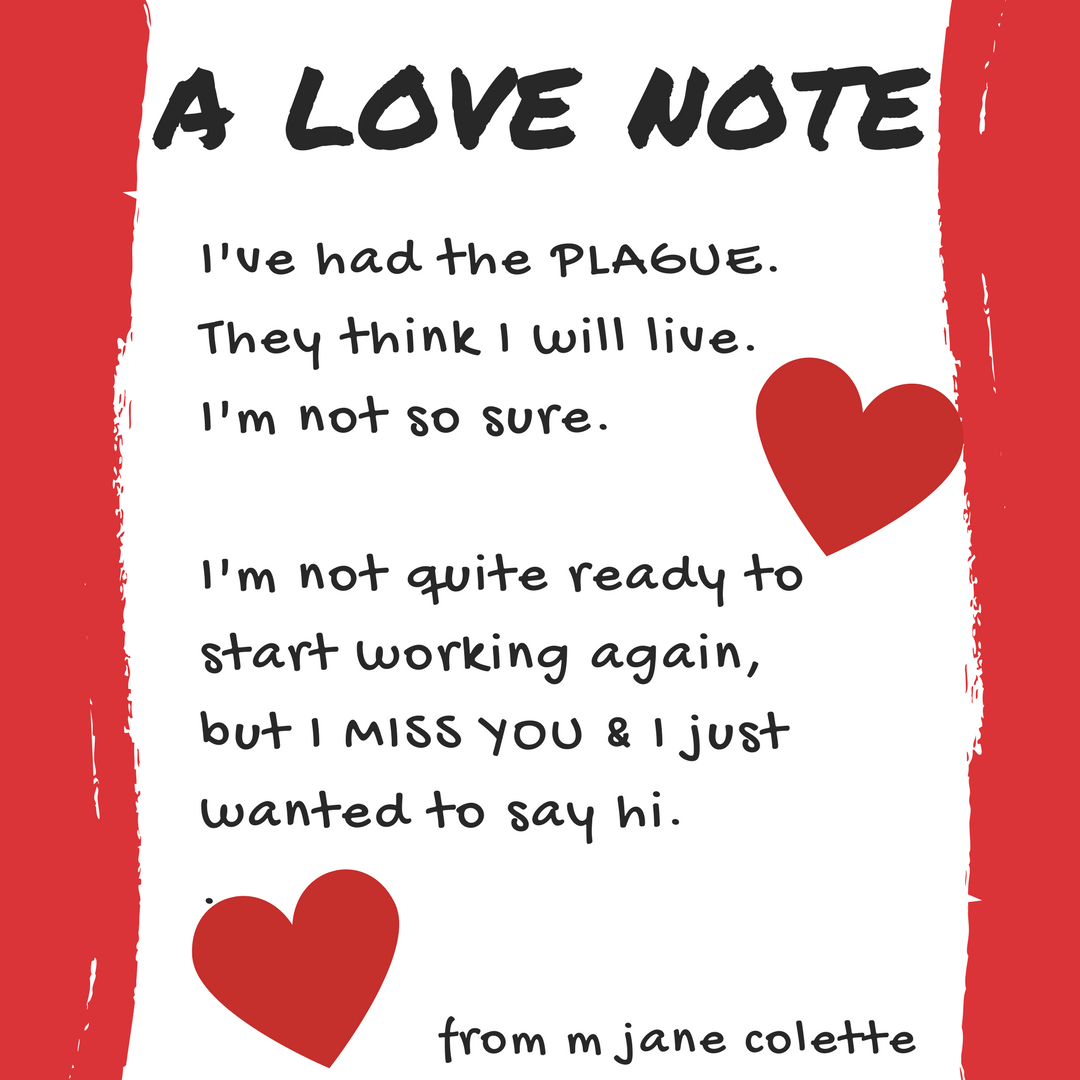 A LOVE NOTE
I've had the PLAGUE.
They think I will live.
I'm not so sure.
I'm not quite ready to
start working again,
but I MISS YOU & I just
wanted to say hi.
.
from m jane colette